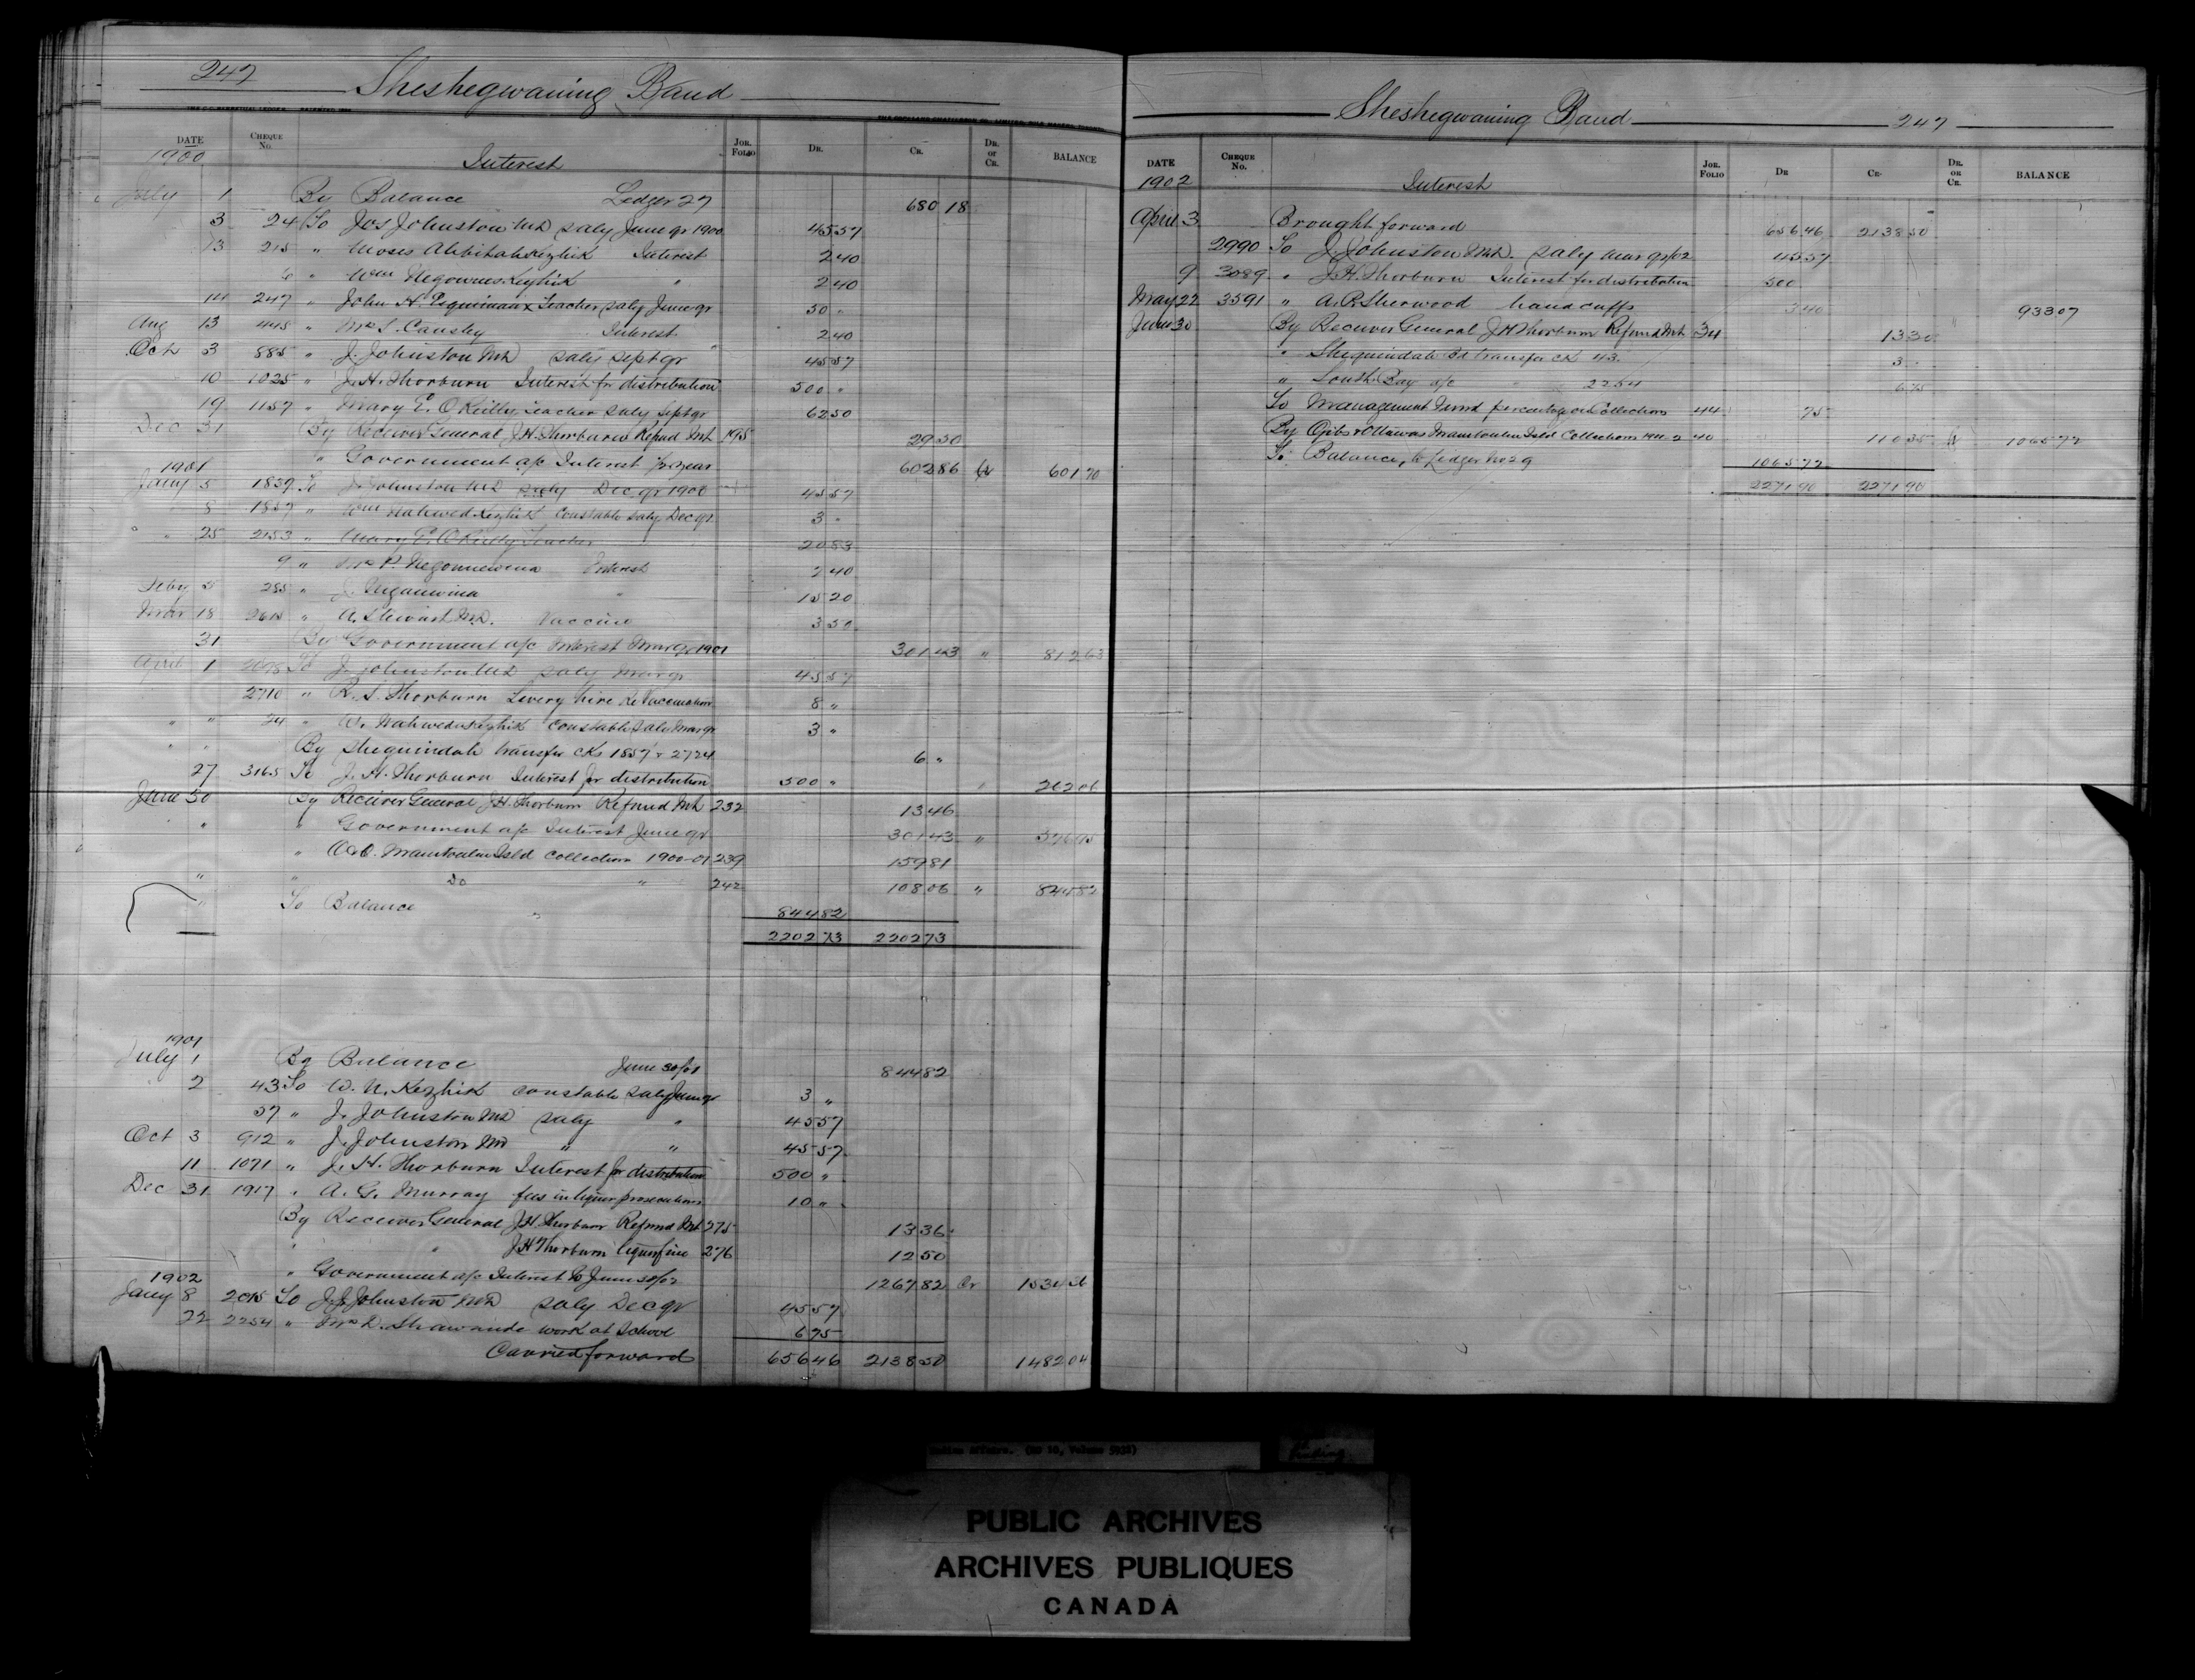 247 Sheshegwaning Band
DATE CHEQUE No. JOR. FOLIO DR. CR. DR. OR CR. BALANCE
1900 Interest
July 1 By Balance Ledger 27 680 18
3 24 To Jos Johnston MD saly June qr 1900 45 57
13 215 " Moses Interest 2 40
6 " Wm " 2 40
14 247 " John H. Esquimaux Teacher saly June qr 50 "
Aug 13 445 " Mrs S. Causley Interest 2 40
Oct 3 885 " J. Johnston MD saly Sept qr 45 57
10 1025 " J. H. Thorburn Interest for distribution 500 "
19 1157 " Mary E. O'Reilly, Teacher saly Septqr 62 50
Dec 31 By Receiver General J.H. Thorburn Refund Int 195 29 50
" Government a/c Interest 1/2 year 602 86 Cr 601 70
1901
Jany 5 1839 To J. Johnston MD saly Dec qr 1900 45 57
8 1857 " Wm Constable saly Dec qr 3 "
" " 25 2153 " Mary E. O'Reilly Teacher 20 83
9 " Mrs P. Negonnewena Interest 2 40
Feby 5 285 " J. " 15 20
Mar 18 2615 " A. Stewart M.D. Vaccine 3 50
31 By Government a/c Interest Mar qr 1901 301 43 " 812 63
April 1 2698 To J. Johnston MD saly Mar qr 45 57
2710 " R. S. Thorburn Livery hire Re Vaccination 8 "
" " 24 " W. Constable saly Mar qr 3 "
" " By Sheguindah transfer cks 1857 & 2724 6 "
27 3165 To J. H. Thorburn Interest for distribution 500 " " 262 06
June 30 By Receiver General J.H. Thorburn Refund Int 232 13 46
" " Government a/c Interest June qr 301 43 " 576 95
" O&O. Manitoulin Isld Collection 1900-01 239 159 81
" " Do " 242 108 06 " 844 82
" To Balance " 844 82
2202 73 2202 73
1901
July 1 By Balance June 30/01 844 82
2 43 To W. N. Kezhik constable saly June qr 3 "
57 " J. Johnston MD saly " 45 57
Oct 3 912 " J. Johnston MD " " 45 57
11 1071 " J. H. Thorburn Interest for distribution 500 "
Dec 31 1917 " A. G. Murray fees in liquor prosecutions 10 "
By Receiver General J.H. Thorburn Refund Int 275 13 36
" " J H Thorburn liquor fine 276 12 50
" Government a/c Interest to June 30/02 1267 82 Cr 1534 36
1902
Jany 8 2015 To J. Johnston MD saly Dec qr 45 57
22 2254 " Mrs D. Shawande work at School 6 75
Carried forward 656 46 2138 50 1482 04
Sheshegwaning Band 247
DATE CHEQUE No. JOR. FOLIO DR. CR. DR. OR CR. BALANCE
1902 Interest
April 3 Brought forward 656 46 2138 50
2990 To J. Johnston MD. saly Mar qr/02 45 57
9 3089 " J.H. Thorburn Interest for distribution 500
May 22 3591 " A. P. Sherwood handcuffs 3 40 " 933 07
June 30 By Receiver General J H Thorburn Refund Int 34 13 30
" Sheguindah Bd transfer ck 43. 3 "
" South Bay a/c " 2254 6 75
To Management Fund percentage on Collections 44 75
By Ojibs & Ottawas Manitoulin Isld Collections 1901-2 40 110 35 Cr 1065 72
To Balance, to Ledger No 29 1065 72
2271 90 2271 90
Indian Affairs. (RG 10, Volume 5932)
PUBLIC ARCHIVES
ARCHIVES PUBLIQUES
CANADA